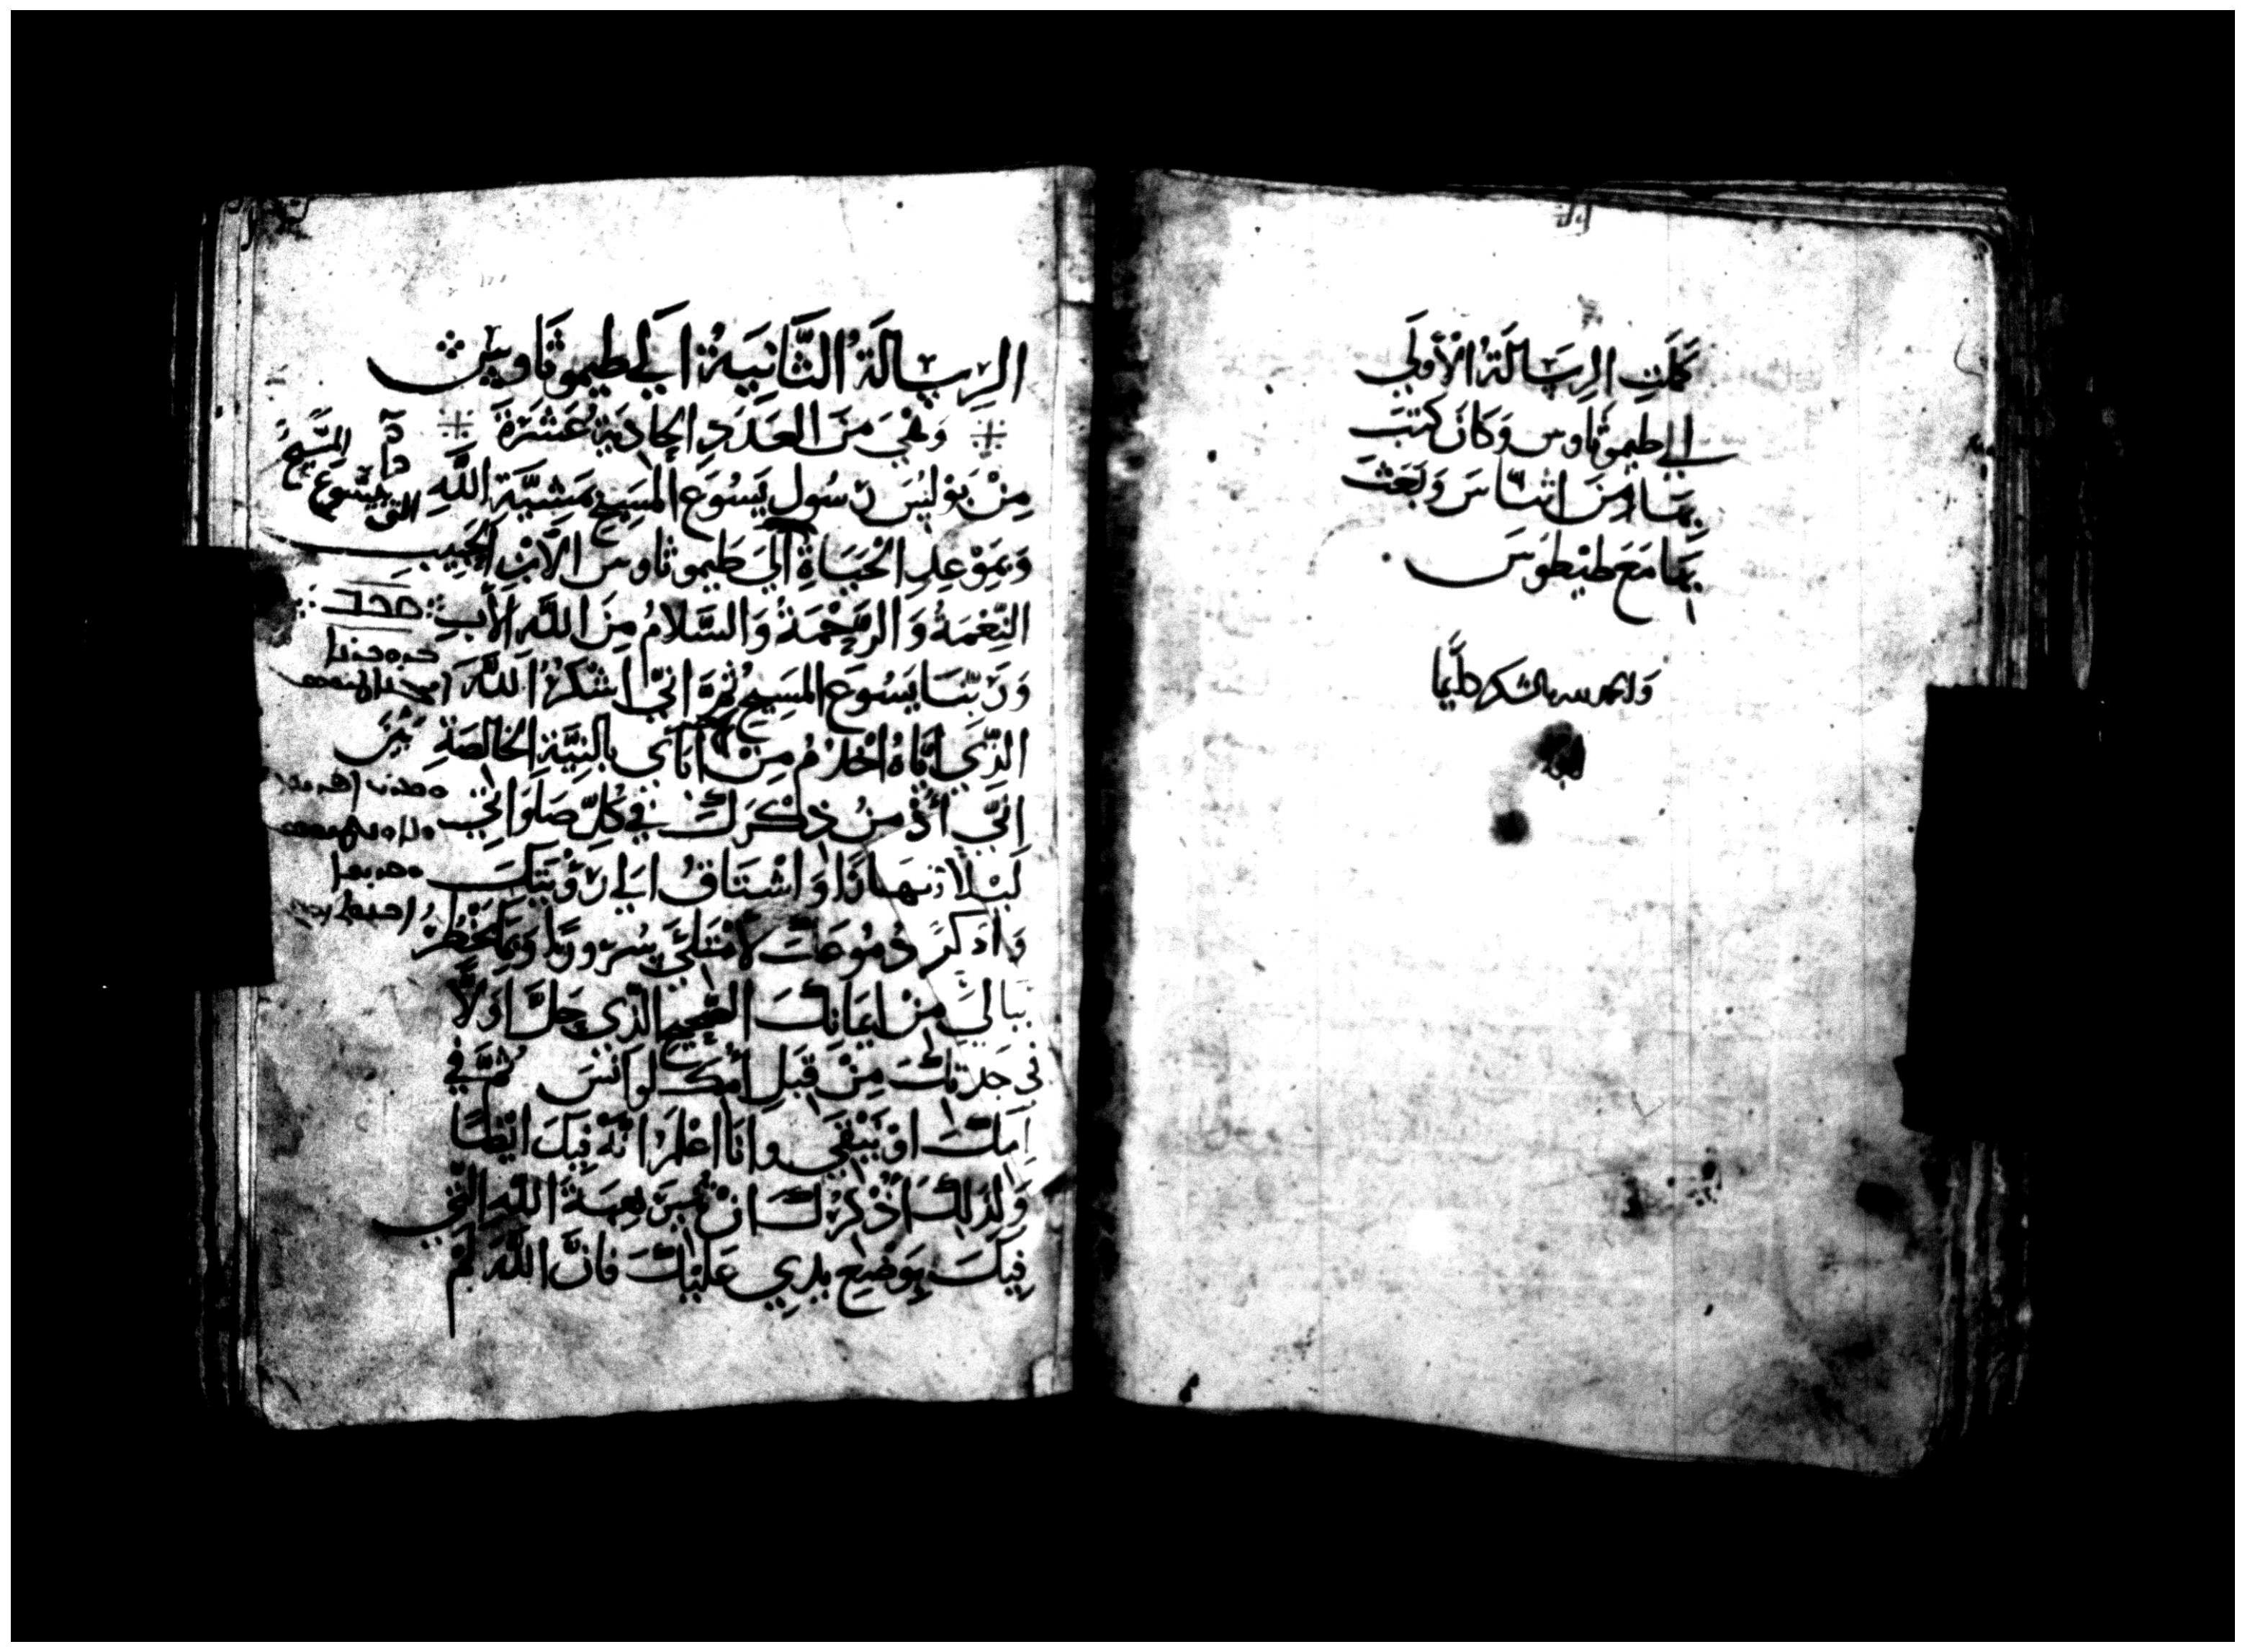 كملت الرسالة الأولى
الى طيموثاوس وكان كتب
بها من اثناس وبعث
بها مع طيطوس
ولله الشكر دايما
الرسالة الثانية الى طيموثاوس
وهي من العدد الحادية عشرة
مِنْ بولس رسول يسوع المسيح بمشيّة الله
وبموعد الحياة الى طيموثاوس الابن الحبيب
النِّعْمَةُ وَالرَّحْمَةُ وَالسَّلامُ مِنَ اللَّه الآبِ
وربّنا يسوع المسيح ثم انّي اشكر الله
الذي اياه اخدم من ابآي بالنيّة الخالصة
انّي ذكرك في كلّ صلواتي
ليلا ونهارًا واشتاق الى رؤيتك
واذكر دموعك لامتلئ سرورًا وبما يخطر
ببالي من ايمانك الصحيح الذي حلّ اولاً
في جدتك من قبل امك لوانس ثم في
امك اونيقي وانا اعلم انه فيك ايضًا
ولذلك اذكرك ان الله التي
فيك بوضع يدي عليك فان الله لم
المسيح
يسوع